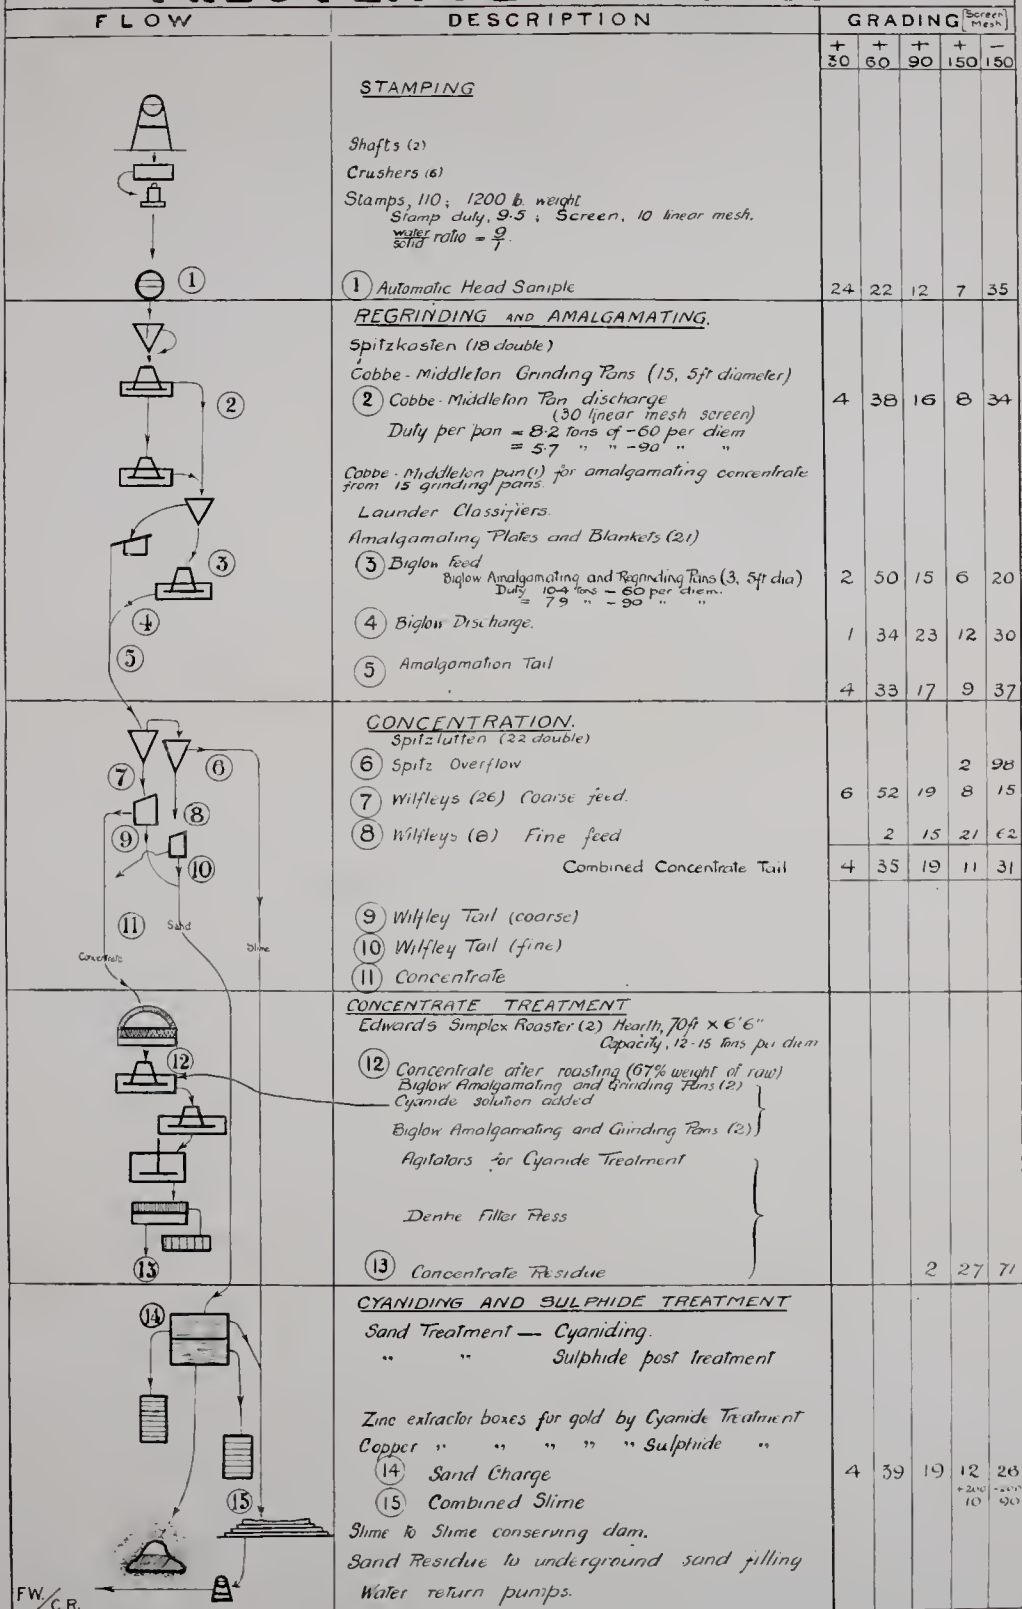 FLOW DESCRIPTION GRADING [Screen Mesh]
+ 30 + 60 + 90 + 150 - 150
STAMPING
Shafts (2)
Crushers (6)
Stamps, 110; 1200 lb. weight
Stamp duty, 9.5; Screen, 10 linear mesh.
water/solid ratio = 9/1.
1 1 Automatic Head Sample 24 22 12 7 35
REGRINDING AND AMALGAMATING.
Spitzkasten (18 double)
Cobbe-Middleton Grinding Pans (15, 5ft diameter)
2 2 Cobbe-Middleton Pan discharge 4 38 16 8 34
(30 linear mesh screen)
Duty per pan = 8.2 tons of -60 per diem
= 5.7 " " -90 " "
Cobbe-Middleton pan (1) for amalgamating concentrate
from 15 grinding pans.
Launder Classifiers.
Amalgamating Plates and Blankets (21)
3 3 Biglow Feed
Biglow Amalgamating and Regrinding Pans (3, 5ft dia) 2 50 15 6 20
Duty 10.4 tons - 60 per diem.
= 7.9 " - 90 " "
4 4 Biglow Discharge. 1 34 23 12 30
5 5 Amalgamation Tail 4 33 17 9 37
CONCENTRATION.
Spitzlutten (22 double)
6 6 Spitz Overflow 2 98
7 7 Wilfleys (26) Coarse feed. 6 52 19 8 15
8 8 Wilfleys (8) Fine feed 2 15 21 62
Combined Concentrate Tail 4 35 19 11 31
9 9 Wilfley Tail (coarse)
10 10 Wilfley Tail (fine)
11 11 Concentrate
Concentrate Sand Slime
CONCENTRATE TREATMENT
Edwards Simplex Roaster (2) Hearth, 70ft × 6'6"
Capacity, 12-15 Tons per diem
12 12 Concentrate after roasting (67% weight of raw)
Biglow Amalgamating and Grinding Pans (2)
Cyanide solution added
Biglow Amalgamating and Grinding Pans (2)
Agitators for Cyanide Treatment
Denhe Filter Press
13 13 Concentrate Residue 2 27 71
CYANIDING AND SULPHIDE TREATMENT
14 Sand Treatment — Cyaniding.
" " Sulphide post treatment
Zinc extractor boxes for gold by Cyanide Treatment
Copper " " " " " Sulphide "
14 Sand Charge 4 39 19 12 26
15 15 Combined Slime +200 10 -200 90
Slime to Slime conserving dam.
Sand Residue to underground sand filling
Water return pumps.
F.W./C.R.